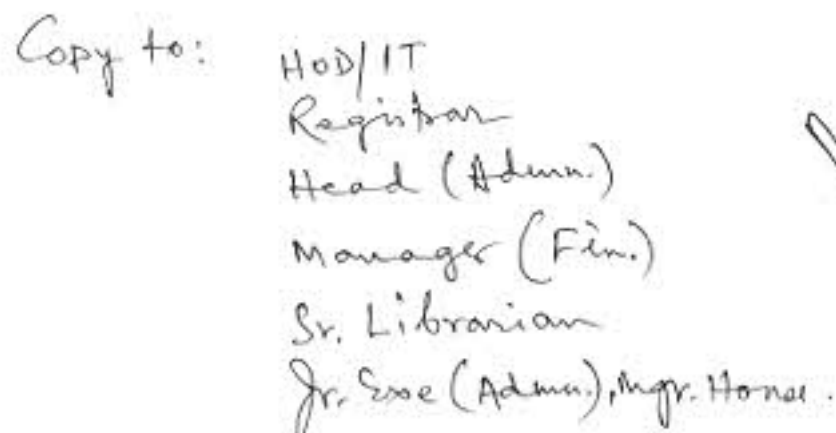 Copy to: HOD/IT
Registrar
Head (Admn.)
Manager (Fin.)
Sr. Librarian
Jr. Exe (Admn.), Mgr. House.